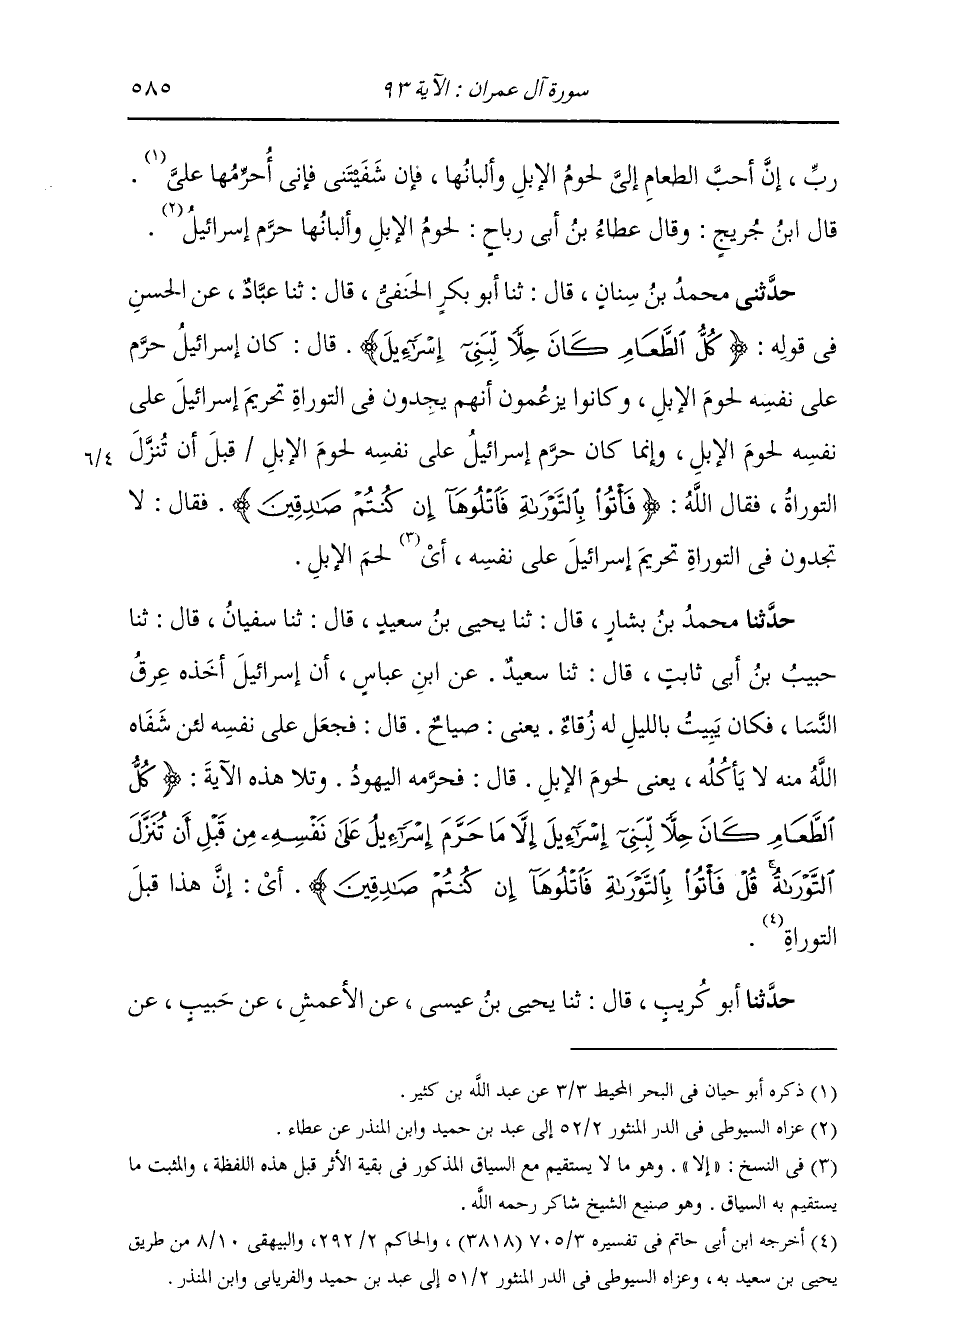 سورة آل عمران : الآية ٩٣ ٥٨٥
ربِّ ، إنَّ أحبَّ الطعامِ إلىَّ لحومُ الإبلِ وألبانُها ، فإن شَفَيْتَنى فإنى أُحرِّمُها علىَّ(١) .
قال ابنُ جُريجٍ : وقال عطاءُ بنُ أبى رباحٍ : لحومُ الإبلِ وألبانُها حرَّم إسرائيلُ(٢) .
حدَّثنى محمدُ بنُ سِنانٍ ، قال : ثنا أبو بكرٍ الحَنفىُّ ، قال : ثنا عبَّادٌ ، عن الحسنِ
فى قولِه : ﴿ كُلُّ ٱلطَّعَامِ كَانَ حِلًّا لِّبَنِىٓ إِسْرَٰٓءِيلَ﴾ . قال : كان إسرائيلُ حرَّم
على نفسِه لحومَ الإبلِ ، وكانوا يزعُمون أنهم يجِدون فى التوراةِ تحريمَ إسرائيلَ على
نفسِه لحومَ الإبلِ ، وإنما كان حرَّم إسرائيلُ على نفسِه لحومَ الإبلِ / قبلَ أن تُنزَّلَ ٦/٤
التوراةُ ، فقال اللَّهُ : ﴿ فَأْتُوا۟ بِٱلتَّوْرَىٰةِ فَٱتْلُوهَآ إِن كُنتُمْ صَـٰدِقِينَ ﴾ . فقال : لا
تجدون فى التوراةِ تحريمَ إسرائيلَ على نفسِه ، أىْ(٣) لحمَ الإبلِ .
حدَّثنا محمدُ بنُ بشارٍ ، قال : ثنا يحيى بنُ سعيدٍ ، قال : ثنا سفيانُ ، قال : ثنا
حبيبُ بنُ أبى ثابتٍ ، قال : ثنا سعيدٌ . عن ابنِ عباسٍ ، أن إسرائيلَ أخَذه عِرقُ
النَّسَا ، فكان يَبِيتُ بالليلِ له زُقاءٌ . يعنى : صياحٌ . قال : فجعَل على نفسِه لئن شَفَاه
اللَّهُ منه لا يَأكُلُه ، يعنى لحومَ الإبلِ . قال : فحرَّمه اليهودُ . وتلا هذه الآيةَ : ﴿ كُلُّ
ٱلطَّعَامِ كَانَ حِلًّا لِّبَنِىٓ إِسْرَٰٓءِيلَ إِلَّا مَا حَرَّمَ إِسْرَٰٓءِيلُ عَلَىٰ نَفْسِهِۦ مِن قَبْلِ أَن تُنَزَّلَ
ٱلتَّوْرَىٰةُ ۚ قُلْ فَأْتُوا۟ بِٱلتَّوْرَىٰةِ فَٱتْلُوهَآ إِن كُنتُمْ صَـٰدِقِينَ ﴾ . أىْ : إنَّ هذا قبلَ
التوراةِ(٤) .
حدَّثنا أبو كُريبٍ ، قال : ثنا يحيى بنُ عيسى ، عن الأعمشِ ، عن حَبيبٍ ، عن
(١) ذكره أبو حيان فى البحر المحيط ٣/٣ عن عبد اللَّه بن كثير .
(٢) عزاه السيوطى فى الدر المنثور ٥٢/٢ إلى عبد بن حميد وابن المنذر عن عطاء .
(٣) فى النسخ : «إلا» . وهو ما لا يستقيم مع السياق المذكور فى بقية الأثر قبل هذه اللفظة ، والمثبت ما
يستقيم به السياق . وهو صنيع الشيخ شاكر رحمه اللَّه .
(٤) أخرجه ابن أبى حاتم فى تفسيره ٧٠٥/٣ (٣٨١٨) ، والحاكم ٢/ ٢٩٢، والبيهقى ٨/١٠ من طريق
يحيى بن سعيد به ، وعزاه السيوطى فى الدر المنثور ٥١/٢ إلى عبد بن حميد والفريابى وابن المنذر .